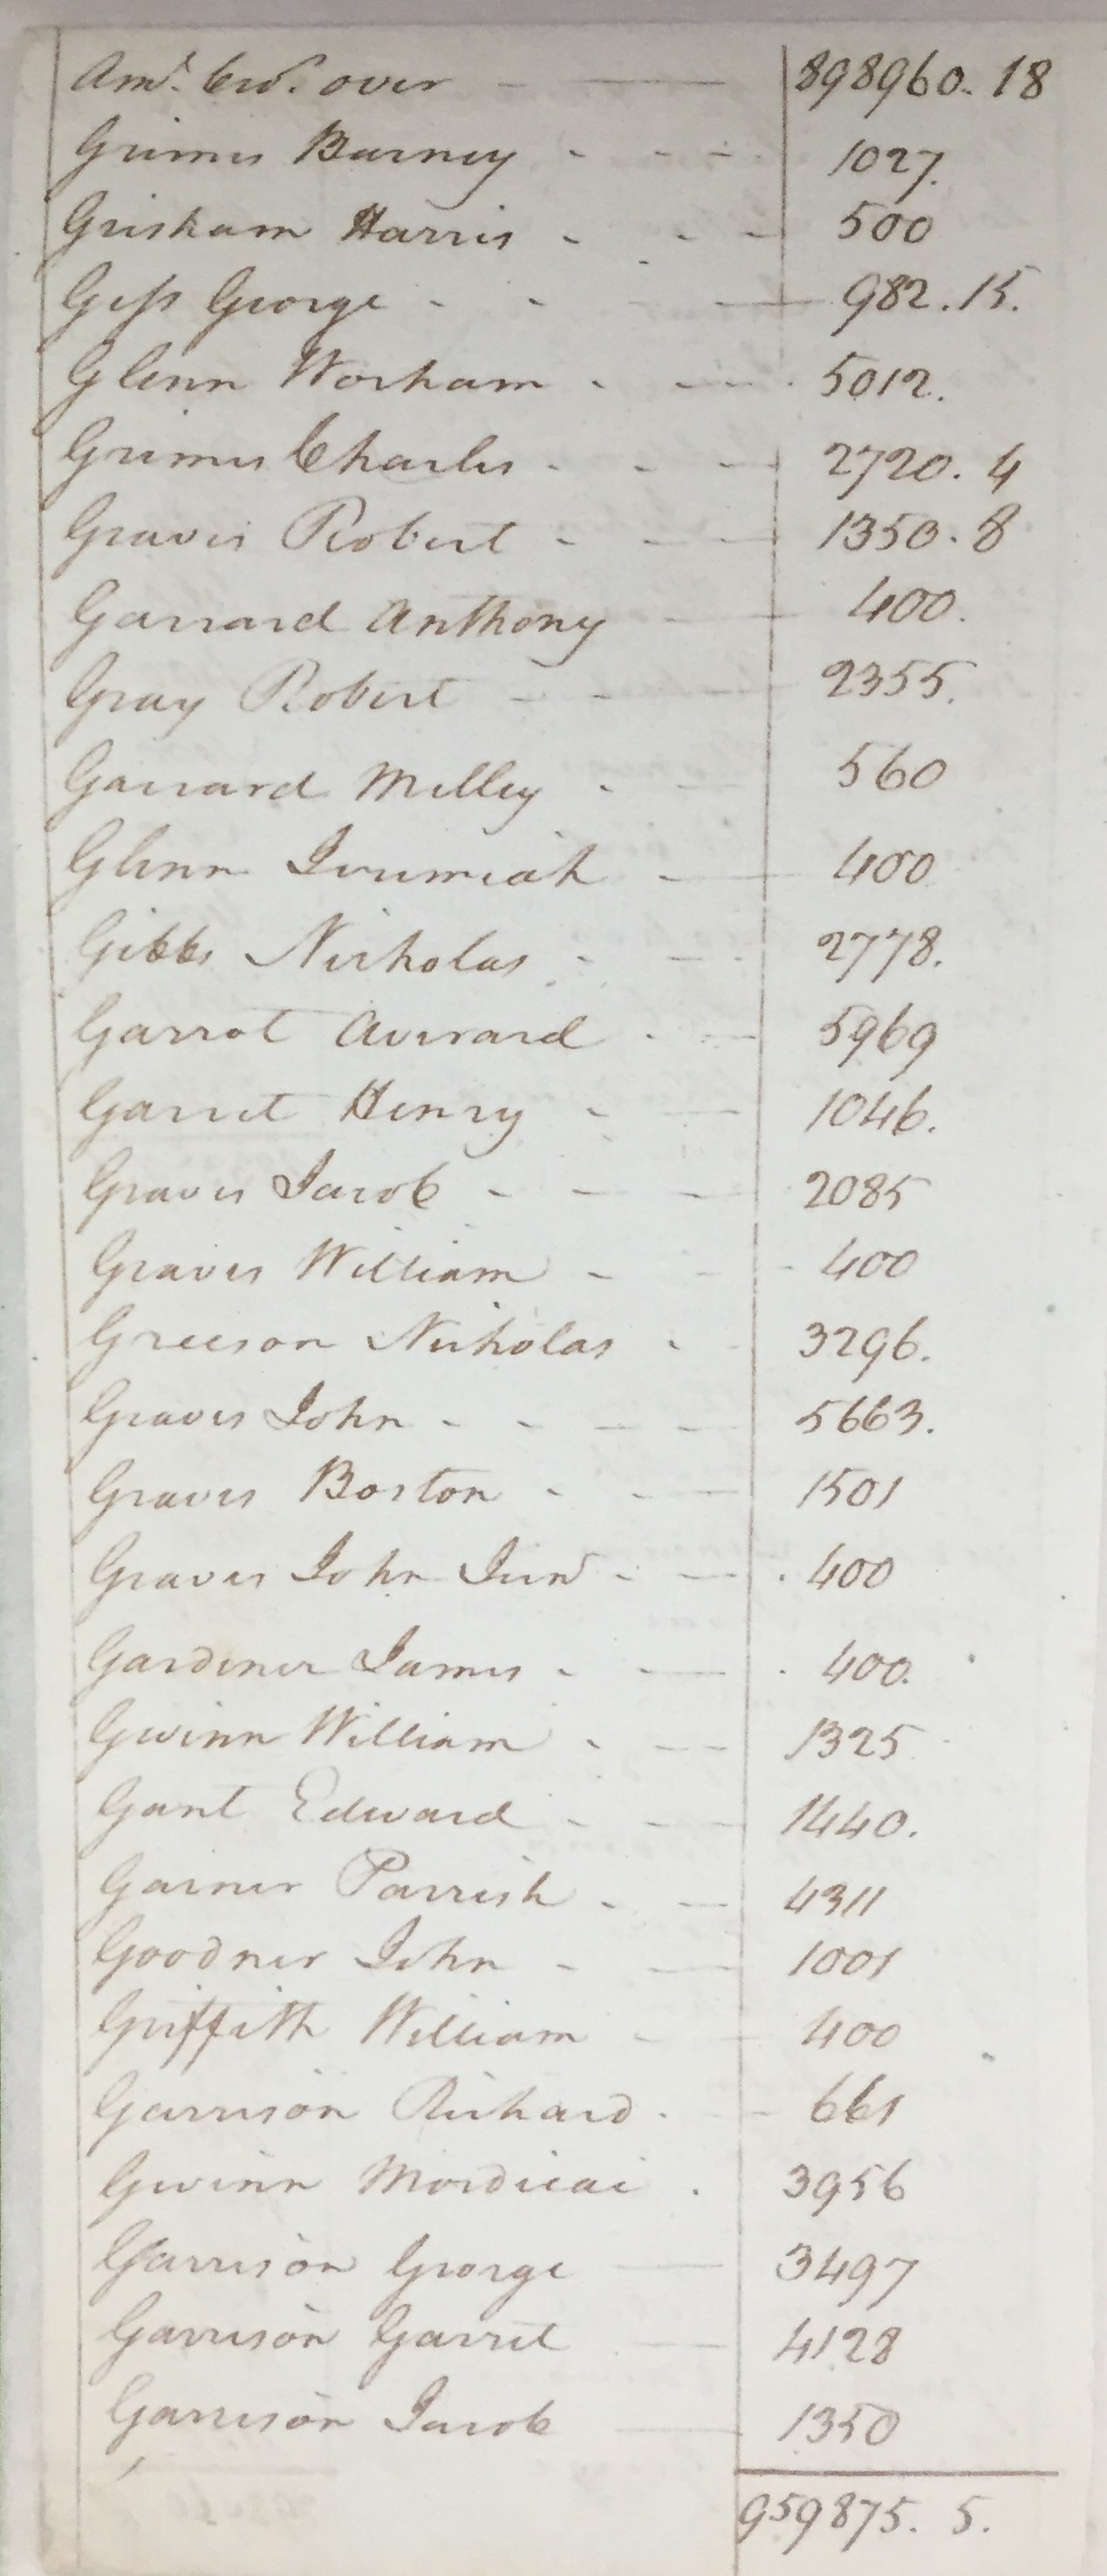 Amt. Crd. over — 898960. 18
Grimes Barney - - - 1027.
Grisham Harris - - - 500
Gess George - - - 982. 15.
Glenn Worham - - 5012.
Grimes Charles - - - 2720. 4
Graves Robert - - 1350. 8
Garrard Anthony - - 400.
Gray Robert - - - 2355.
Garrard Milley - - 560
Glenn Jeremiah - - 400
Gibbs Nicholas - - 2778.
Garrot Averard - - 5969
Garret Henry - - 1046.
Graves Jacob - - - 2085
Graves William - - 400
Greeson Nicholas - - 3296.
Graves John - - - - 5663.
Graves Boston - - - 1501
Graves John Junr - - 400
Gardener James - - 400.
Gwinn William - - 1325
Gant Edward - - - 1440.
Garner Parrish - - 4311
Goodner John - - 1001
Griffith William - - 400
Garrison Richard - - 661
Gwinn Mordicai - 3956
Garrison George — 3497
Garrison Garret — 4128
Garrison Jacob — 1350
959875. 5.